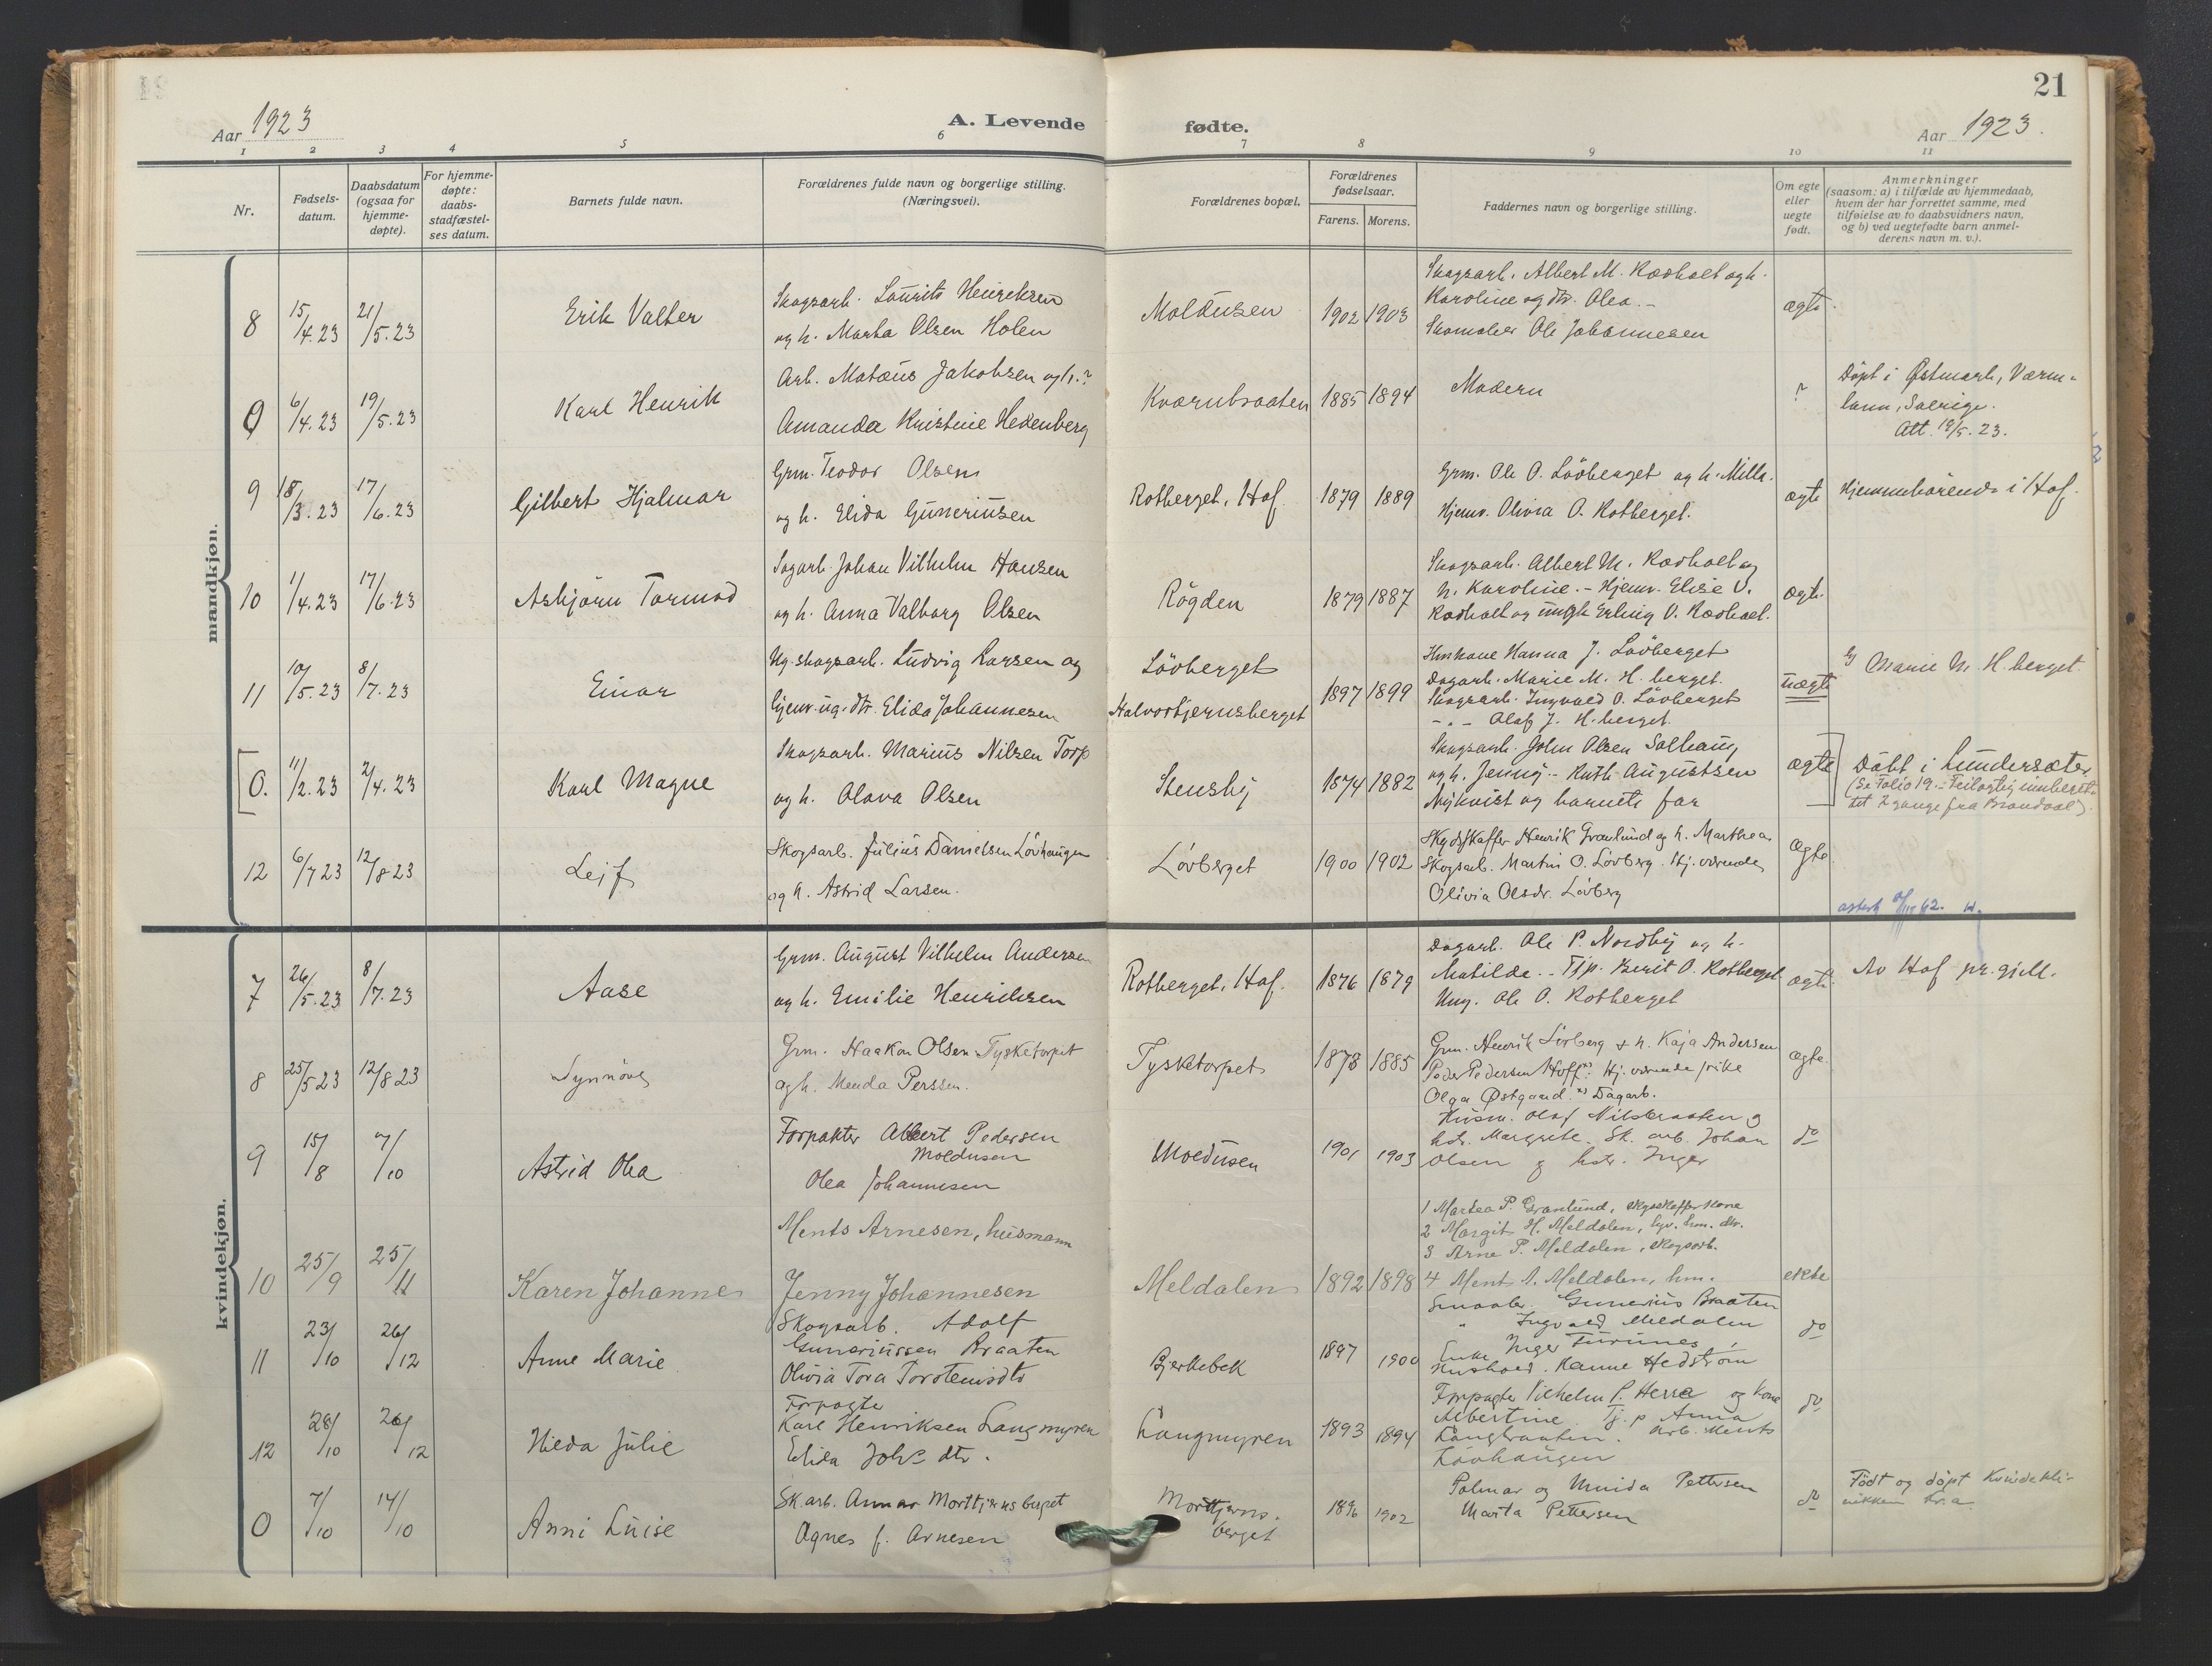 21
Aar 1923
A. Levende fødte.
Aar 1923.
1 2 3 4 5 6 7 8 9 10 11
Nr.
Fødsels-
datum.
Daabsdatum
(ogsaa for
hjemme-
døpte).
For hjemme-
døpte:
daabs-
stadfæstel-
ses datum.
Barnets fulde navn.
Forældrenes fulde navn og borgerlige stilling.
(Næringsvei).
Forældrenes bopæl.
Forældrenes
fødselsaar.
Farens. Morens.
Faddernes navn og borgerlige stilling.
Om egte
eller
uegte
født.
Anmerkninger
(saasom: a) i tilfælde av hjemmedaab,
hvem der har forrettet samme, med
tilføielse av to daabsvidners navn,
og b) ved uegtefødte barn anmel-
derens navn m. v.).
mandkjøn.
8
15/4.23
21/5.23
Erik Valter
Skogsarb. Laurits Henriksen
og h. Marta Olsen Holen
Moldusen
1902 1903
Skogsarb. Albert M. Rødholt og h.
Karoline og dtr. Olea. -
Skomaker Ole Johannesen
ægte.
0
6/4.23
19/5.23
Karl Henrik
Arb. Matæus Jakobsen og h.?
Amanda Kristine Hedenberg
Kværnbraaten
1885 1894
Modern
?
Döpt i Østmark, Værm-
lann, Sverige.
Att. 19/5.23.
9
18/3.23
17/6.23
Gilbert Hjalmar
Grm. Teodor Olsen
og h. Elida Guneriusen
Rotberget, Hof.
1879 1889
Grm. Ole O. Lövberget og h. Milla.
Hjemv. Olivia O. Rotberget.
ægte
Hjemmhörende i Hof.
10
1/4.23
17/6.23
Asbjørn Tormod
Sagarb. Johan Vilhelm Hansen
og h. Anna Valborg Olsen
Rögden
1879 1887
Skogsarb. Albert M. Rødholt og
h. Karoline. - Hjemv. Elise V.
Rødholt og ungk Erling V. Rødholt.
ægte
11
10/5.23
8/7.23
Einar
Ug. skogsarb. Ludvig Larsen og
hjemv. ug. dtr. Elida Johannesen
Lövberget
Halvortjernsberget
1897 1899
Hmkone Hanna J. Lövberget
Dagarb. Marie M. H. berget.
Skogsarb. Ingvald O. Lövberget
- " - Olaf J. H. berget.
uægte
Marie M. H. berget.
[0.
11/2.23
2/4.23
Karl Magne
Skogsarb. Marius Nilsen Torp
og h. Olava Olsen
Stensby
1874 1882
Skogsarb. John Olsen Solhaug
og h. Jenny. - Ruth Augustsen
Nykvist og barnets far
ægte]
Döbt i Lundersæter
(Se Folio 19. - Feilagtig innberet-
tet 2 gange fra Brandval).
12
6/7 23
12/8 23
Leif
Skogsarb. Julius Danielsen Lövhaugen
og h. Astrid Larsen.
Lövberget
1900 1902
Skydsskaffer Henrik Granlund og h. Marthea
Skogsarb. Martin O. Lövberg. Hj. værende
Olivia Olsdr. Lövberg
Ægte
kvindekjøn.
7
26/5.23
8/7.23
Aase
Grm. August Vilhelm Andersen
og h. Emilie Henriksen
Rotberget, Hof.
1876 1879
Dagarb. Ole P. Nordby og h.
Matilde. - Tjp. Berit O. Rotberget
Ung. Ole O. Rotberget
ægte.
Av Hof pr.gjell.
8
25/5 23
12/8 23
Synnöve
Grm. Haakon Olsen Tysketorpet
og h. Menda Perssen.
Tysketorpet
1878 1885
Grm. Henrik Lövberg & h. Kaja Andersen
Peder Pedersen Hoff x) Hj. værende pike
Olga Østgaard. x) Dagarb.
ægte.
9
15/8
7/10
Astrid Olea
Forpakter Albert Pedersen
Moldusen
Olea Johannesen
Moldusen
1901 1903
Husm. Olaf Nilsbraaten og
hstr. Margrete. Sk. arb. Johan
Olsen og hstr. Inger
do
10
25/9
25/11
Karen Johanne
Ments Arnesen, husmann
Jenny Johannesen
Meldalen
1892 1898
1 Martea P. Granlund, skysskafferkone
2 Margit H. Meldalen, hjv. hm. dtr.
3 Arne P. Meldalen, skogsarb.
4 Ments A. Meldalen, hm.
ekte
11
23/10
26/12
Anne Marie
Skogsarb. Adolf
Gunneriussen Braaten
Olivia Tora Torsteinsdtr
Bjerkebek
1897 1900
Gunerius Braaten
" Ingvald Meldalen
Enke Inger Turunes
Hanne Hedström
do
12
28/10
26/12
Hilda Julie
Forpagter
Karl Henriksen Langmyren
Elida Johs dtr.
Langmyren
1893 1894
Forpagter Vilhelm P. Herra og kone
Albertine. Tj. p Anna
Langbraaten. Arb. Ments
Lövhaugen
do
0
7/10
14/10
Anni Luise
Sk.arb. Annar Morttjernsberget
Agnes f. Arnesen
Morttjerns-
berget
1896 1902
Palmar og Pettersen
Marta Pettersen
do
Födt og döpt Kvindekli-
nikken Kr.a